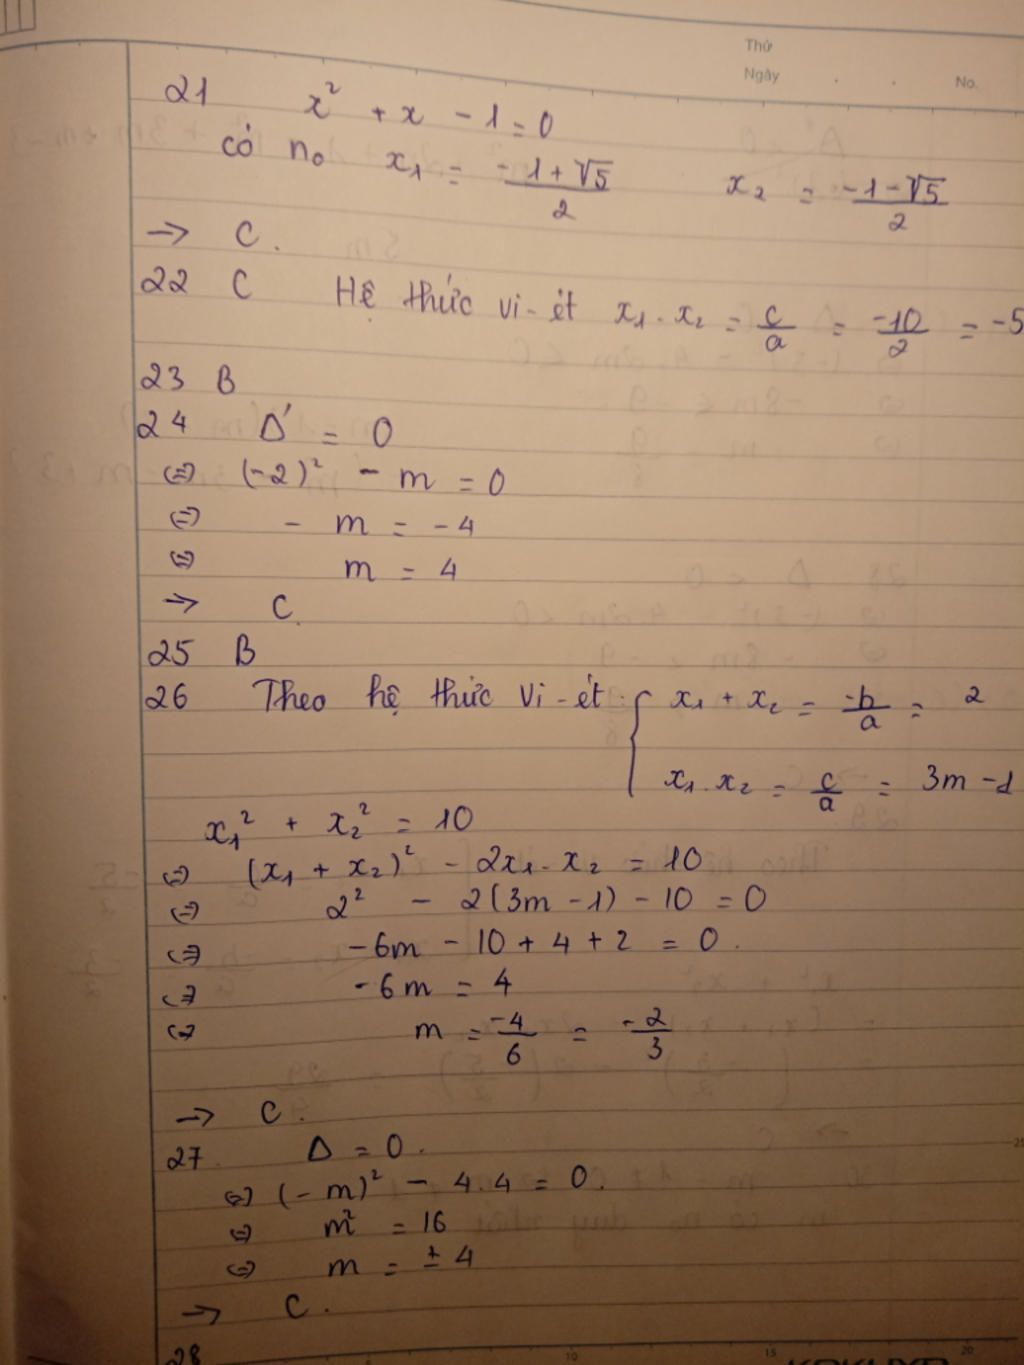 Thứ
Ngày . . No.
21 x² + x - 1 = 0
có no x₁ = -1+√5/2 x₂ = -1-√5/2
→ C.
22 C Hệ thức vi-ét x₁.x₂ = c/a = -10/2 = -5
23 B
24 Δ' = 0
⇔ (-2)² - m = 0
⇔ - m = -4
⇔ m = 4
→ C.
25 B
26 Theo hệ thức vi-ét: { x₁ + x₂ = -b/a = 2
x₁.x₂ = c/a = 3m - 1
x₁² + x₂² = 10
⇔ (x₁ + x₂)² - 2x₁.x₂ = 10
⇔ 2² - 2(3m - 1) - 10 = 0
⇔ -6m - 10 + 4 + 2 = 0.
⇔ -6m = 4
⇔ m = -4/6 = -2/3
→ C.
27. Δ = 0.
⇔ (-m)² - 4.4 = 0.
⇔ m² = 16
⇔ m = ±4
→ C.
28
10 15 20